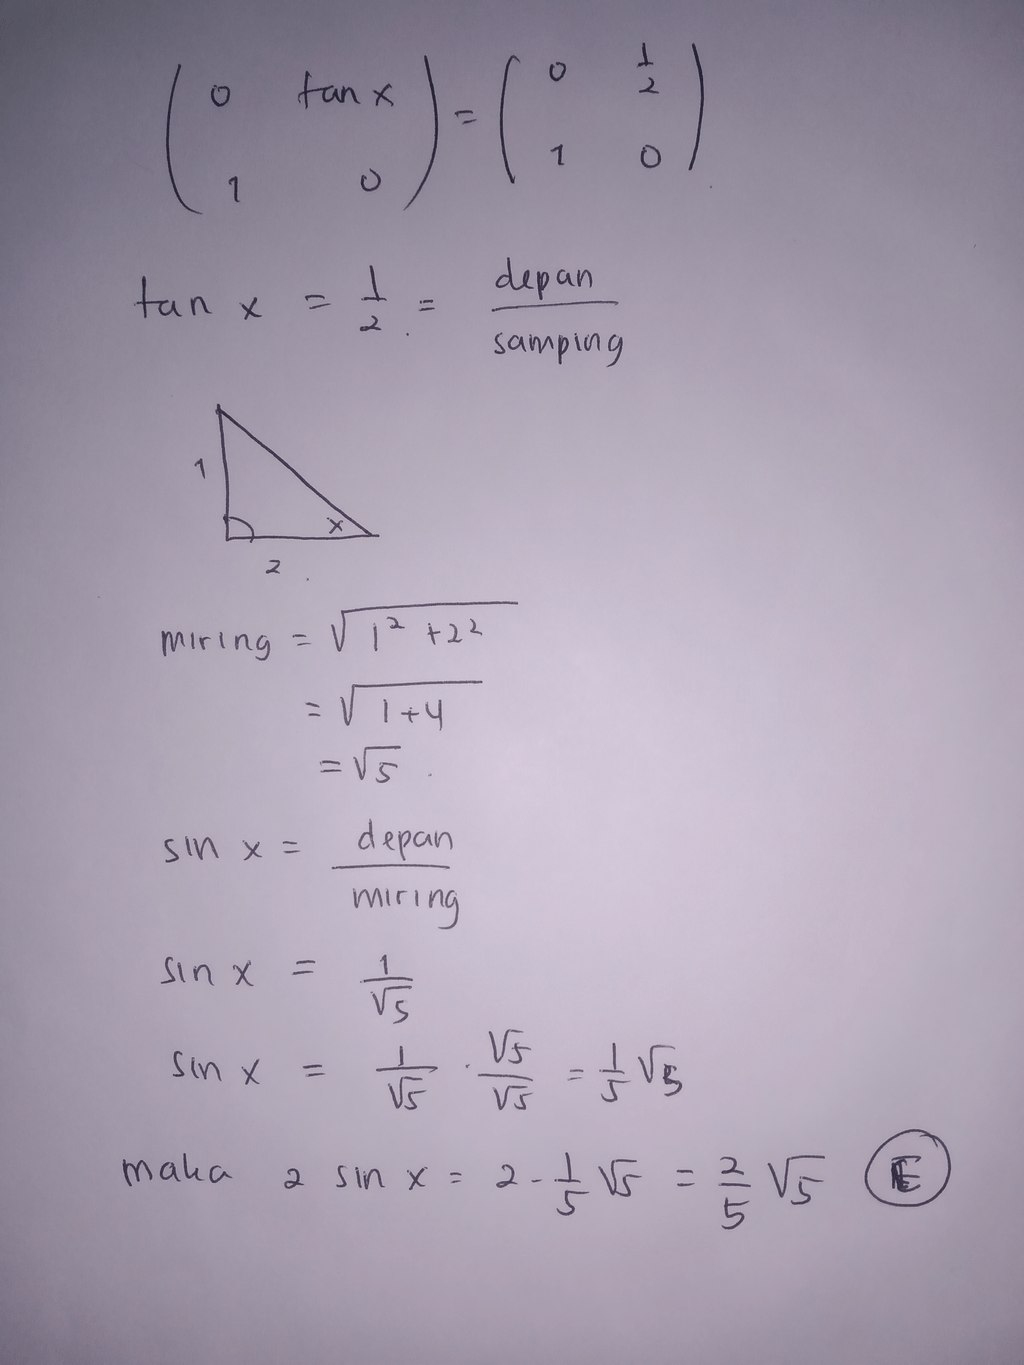 ( 0 tan x ) = ( 0 1/2 )
( 1 0 ) ( 1 0 )
tan x = 1/2 = depan/samping
1
x
2
miring = √(1² + 2²)
= √(1+4)
= √5
sin x = depan/miring
sin x = 1/√5
sin x = 1/√5 · √5/√5 = 1/5 √5
maka 2 sin x = 2 - 1/5 √5 = 2/5 √5 E